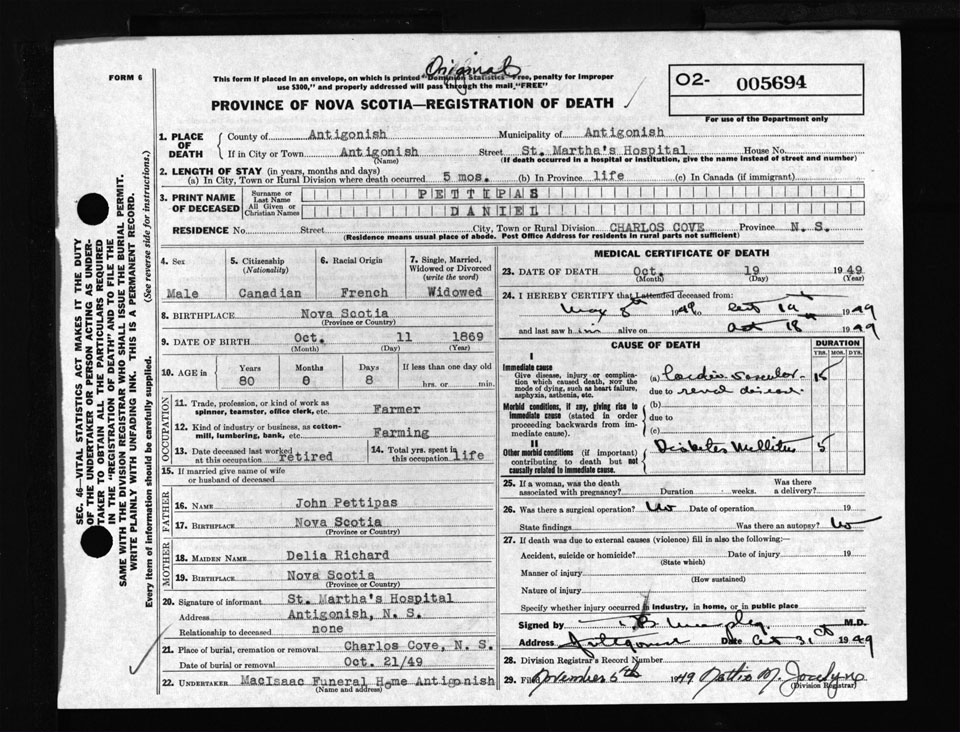 Original
FORM 6
This form if placed in an envelope, on which is printed "Dominion Statistics—Free, penalty for improper
use $300," and properly addressed will pass through the mail, "FREE"
PROVINCE OF NOVA SCOTIA—REGISTRATION OF DEATH
O2- 005694
For use of the Department only
SEC. 46—VITAL STATISTICS ACT MAKES IT THE DUTY
OF THE UNDERTAKER OR PERSON ACTING AS UNDER-
TAKER TO OBTAIN ALL THE PARTICULARS REQUIRED
IN THE "REGISTRATION OF DEATH" AND TO FILE THE
SAME WITH THE DIVISION REGISTRAR WHO SHALL ISSUE THE BURIAL PERMIT.
WRITE PLAINLY WITH UNFADING INK. THIS IS A PERMANENT RECORD.
Every item of information should be carefully supplied. (See reverse side for instructions.)
1. PLACE OF DEATH
County of Antigonish Municipality of Antigonish
If in City or Town Antigonish Street St. Martha's Hospital House No.
(Name) (If death occurred in a hospital or institution, give the name instead of street and number)
2. LENGTH OF STAY (in years, months and days)
(a) In City, Town or Rural Division where death occurred 5 mos. (b) In Province life (c) In Canada (if immigrant)
3. PRINT NAME OF DECEASED
Surname or Last Name PETTIPAS
All Given or Christian Names DANIEL
RESIDENCE No. Street City, Town or Rural Division CHARLOS COVE Province N. S.
(Residence means usual place of abode. Post Office Address for residents in rural parts not sufficient)
4. Sex
Male
5. Citizenship (Nationality)
Canadian
6. Racial Origin
French
7. Single, Married, Widowed or Divorced (write the word)
Widowed
8. BIRTHPLACE Nova Scotia
(Province or Country)
9. DATE OF BIRTH Oct. 11 1869
(Month) (Day) (Year)
10. AGE in
Years Months Days If less than one day old
80 0 8 hrs. or min.
OCCUPATION
11. Trade, profession, or kind of work as
spinner, teamster, office clerk, etc. Farmer
12. Kind of industry or business, as cotton-
mill, lumbering, bank, etc. Farming
13. Date deceased last worked
at this occupation retired
14. Total yrs. spent in
this occupation life
15. If married give name of wife
or husband of deceased
FATHER
16. NAME John Pettipas
17. BIRTHPLACE Nova Scotia
MOTHER
18. MAIDEN NAME Delia Richard
19. BIRTHPLACE Nova Scotia
(Province or Country)
20. Signature of informant St. Martha's Hospital
Address Antigonish, N. S.
Relationship to deceased none
21. Place of burial, cremation or removal Charlos Cove, N. S.
Date of burial or removal Oct. 21/49
22. UNDERTAKER MacIsaac Funeral Home Antigonish
(Name and address)
MEDICAL CERTIFICATE OF DEATH
23. DATE OF DEATH Oct. 19 1949
(Month) (Day) (Year)
24. I HEREBY CERTIFY that I attended deceased from:
May 8th 1949 to Oct 19th 1949
and last saw him alive on Oct 18th 1949
CAUSE OF DEATH
DURATION
YRS. MOS. DYS.
I
Immediate cause
Give disease, injury or complica-
tion which caused death, NOT the
mode of dying, such as heart failure,
asphyxia, asthenia, etc.
(a) Cardio-vascular- 15
due to renal disease
Morbid conditions, if any, giving rise to
immediate cause (stated in order
proceeding backwards from im-
mediate cause).
(b)
due to
(c)
II
Other morbid conditions (if important)
contributing to death but not
causally related to immediate cause.
Diabetes Mellitus 5
25. If a woman, was the death
associated with pregnancy? Duration weeks. Was there a delivery?
26. Was there a surgical operation? No Date of operation 19
State findings Was there an autopsy? No
27. If death was due to external causes (violence) fill in also the following:—
Accident, suicide or homicide? Date of injury 19
(State which)
Manner of injury
(How sustained)
Nature of injury
Specify whether injury occurred in industry, in home, or in public place
Signed by B Murphy M.D.
Address Antigonish Date Oct 31st 1949
28. Division Registrar's Record Number
29. Filed November 5th 1949 M. Jocelyn
(Division Registrar)